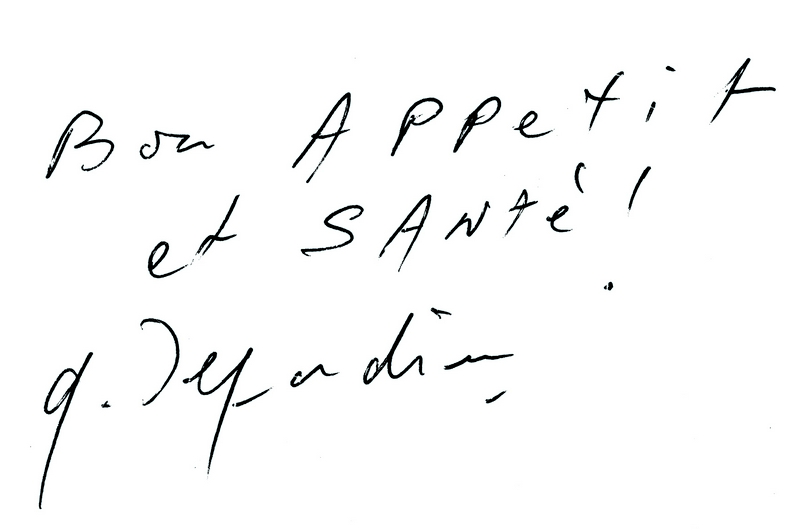 Bon APPetit
et SANté !
G. Depardieu